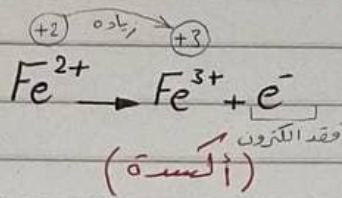 +2 زيادة +3
Fe²⁺ → Fe³⁺ + e⁻
فقد الكترون
(أكسدة)